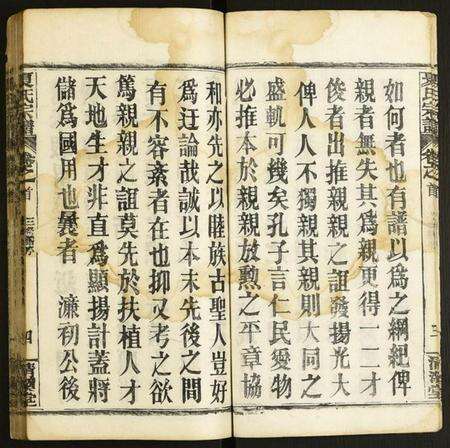 如何者也有譜以為之綱紀俾
親者無失其為親更得一二才
俊者出推親親之誼發揚光大
俾人人不獨親其親則大同之
盛軌可幾矣孔子言仁民愛物
必推本於親親放勲之平章協
和亦先之以睦族古聖人豈好
為迂論哉誠以本末先後之間
有不容紊者在也抑又考之欲
篤親親之誼莫先於扶植人才
天地生才非直為顯揚計蓋將
儲為國用也曩者　濂初公後
夏氏宗譜
卷之首
四
清潤堂